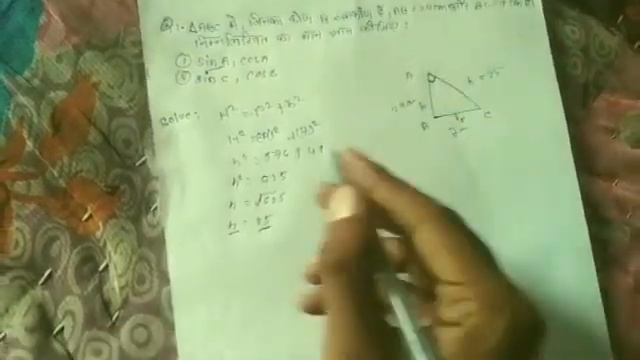 Q1. △ABC में, जिसका कोण B समकोण है, AB = 24 cm और BC = 7 cm है
निम्नलिखित का मान ज्ञात कीजिए:
① sin A, cos A
② sin C, cos C
Solve: H² = P² + B²
H² = (24)² + (7)²
h² = 576 + 49
h² = 625
h = √625
h = 25
A
h = 25
24cm
B
C
7